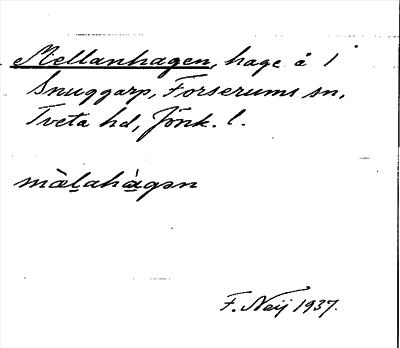 Mellanhagen, hage å 1
Snuggarp, Forserums sn,
Tveta hd, Jönk. l.
mòl̲ahà̲gən
F. Neij 1937.